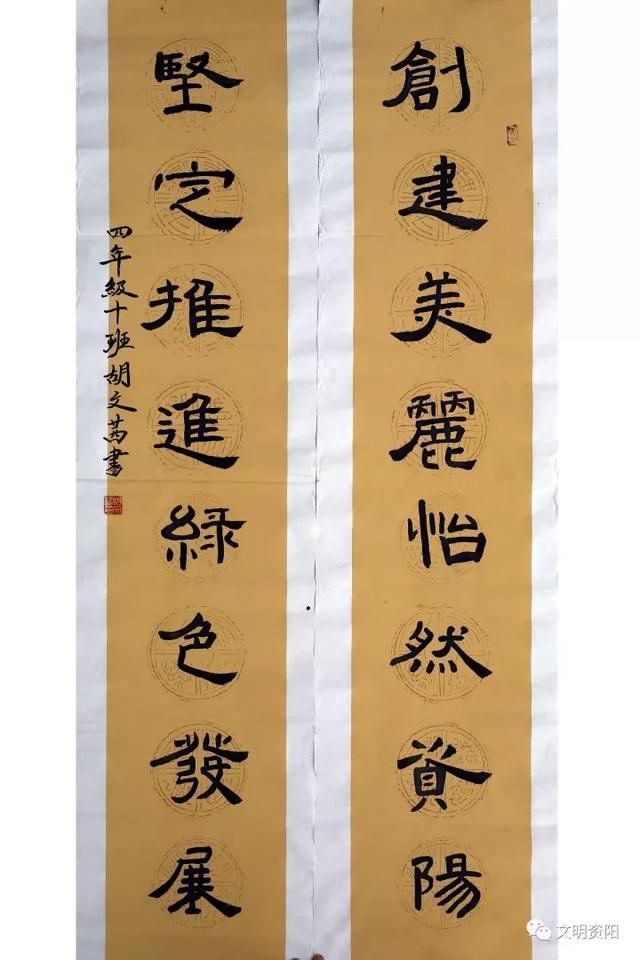 創建美麗怡然資陽
堅定推進緑色發展
四年級十班胡文茜書
文明资阳